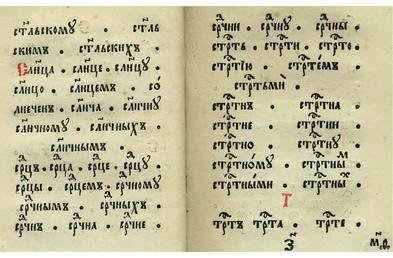 ст҃льскому · ст҃ль
скимъ · ст҃льскихъ ·
Сл҃нца · сл҃нце · сл҃нцꙋ ·
сл҃нцо · сл҃нцемъ · со́
лнеченъ · сл҃нча · сл҃ничнꙋ
сл҃ничномꙋ · сл҃ничныхъ ·
сл҃ничнымъ ·
срⷣцъ · срⷣца · срⷣце · срⷣцꙋ ·
срⷣцы · срⷣцемъ · срⷣчномꙋ
срⷣчнымъ · срⷣчныхъ ·
срⷣчнъ · срⷣчна · срⷣчне ·
срⷣчни · срⷣчнꙋ · срⷣчны ·
стрⷭ҇ть · стрⷭ҇ти · стрⷭ҇то ·
стрⷭ҇тїю · стрⷭ҇темъ ·
стрⷭ҇тьми́ ·
стрⷭ҇тнъ · стрⷭ҇тна ·
стрⷭ҇тне · стрⷭ҇тни ·
стрⷭ҇тно · стрⷭ҇тнꙋ ·
стрⷭ҇тномꙋ · стрⷭ҇тныⷨ ·
стрⷭ҇тными · стрⷭ҇тныⷯ ·
Т
трⷪ҇тъ · трⷪ҇та · трⷪ҇те ·